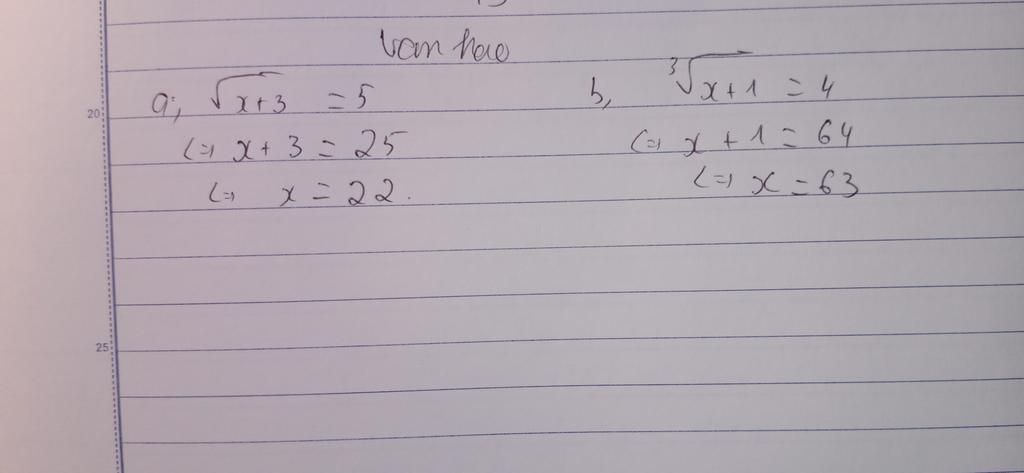 van hao
a; √x+3 = 5
<=> x + 3 = 25
<=> x = 22.
b, ³√x+1 = 4
<=> x + 1 = 64
<=> x = 63
20
25